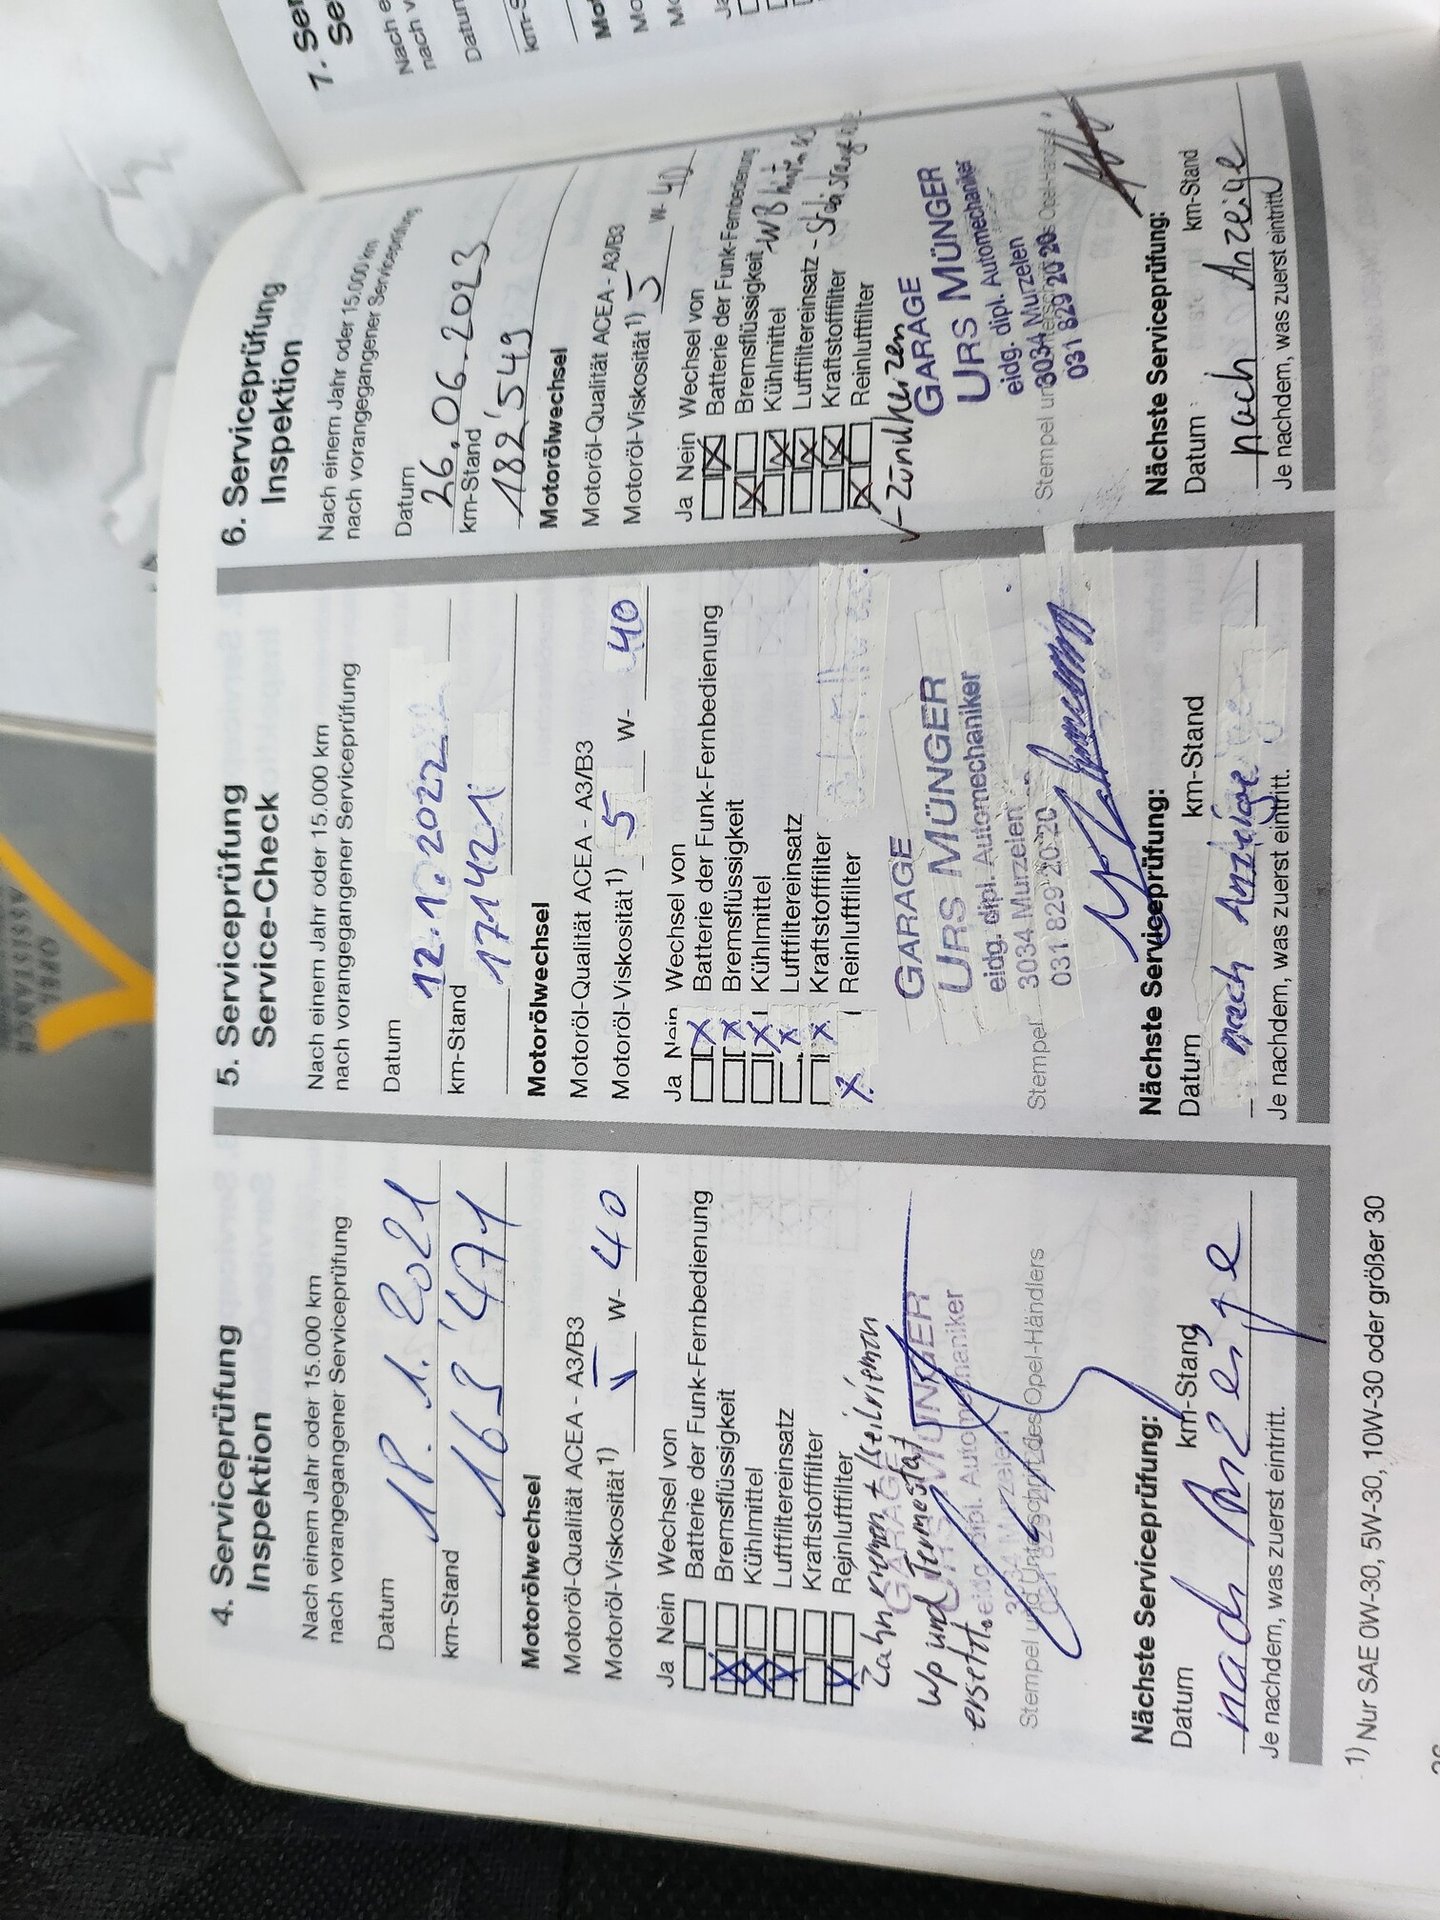 4. Serviceprüfung
Inspektion
Nach einem Jahr oder 15.000 km
nach vorangegangener Serviceprüfung
Datum
18. 1. 2021
km-Stand
163'471
Motorölwechsel
Motoröl-Qualität ACEA - A3/B3
Motoröl-Viskosität 1) 5 W- 40
Ja Nein Wechsel von
Batterie der Funk-Fernbedienung
Bremsflüssigkeit
Kühlmittel
Luftfiltereinsatz
Kraftstofffilter
Reinluftfilter
Zahnriemen + Keilriemen
GARAGE
wp und Termostat
URS MÜNGER
ersetzt.
eidg. dipl. Automechaniker
3034 Murzelen
Stempel und Unterschrift des Opel-Händlers
Nächste Serviceprüfung:
Datum km-Stand
nach Anzeige
Je nachdem, was zuerst eintritt.
5. Serviceprüfung
Service-Check
Nach einem Jahr oder 15.000 km
nach vorangegangener Serviceprüfung
Datum
12.10.2022
km-Stand
171421
Motorölwechsel
Motoröl-Qualität ACEA - A3/B3
Motoröl-Viskosität 1) 5 W- 40
Ja Nein Wechsel von
Batterie der Funk-Fernbedienung
Bremsflüssigkeit
Kühlmittel
Luftfiltereinsatz
Kraftstofffilter
Reinluftfilter
GARAGE
URS MÜNGER
eidg. dipl. Automechaniker
3034 Murzelen
Stempel
031 829 20 20
Nächste Serviceprüfung:
Datum km-Stand
nach Anzeige
Je nachdem, was zuerst eintritt.
6. Serviceprüfung
Inspektion
Nach einem Jahr oder 15.000 km
nach vorangegangener Serviceprüfung
Datum
26.06.2023
km-Stand
182'549
Motorölwechsel
Motoröl-Qualität ACEA - A3/B3
Motoröl-Viskosität 1) 5 W- 40
Ja Nein Wechsel von
Batterie der Funk-Fernbedienung
Bremsflüssigkeit
Kühlmittel
Luftfiltereinsatz
Kraftstofffilter
Reinluftfilter
- Zündkerzen
GARAGE
URS MÜNGER
eidg. dipl. Automechaniker
3034 Murzelen
031 829 20 20
Nächste Serviceprüfung:
Datum km-Stand
nach Anzeige
Je nachdem, was zuerst eintritt.
1) Nur SAE 0W-30, 5W-30, 10W-30 oder größer 30
7.
Nach
nach
Datum